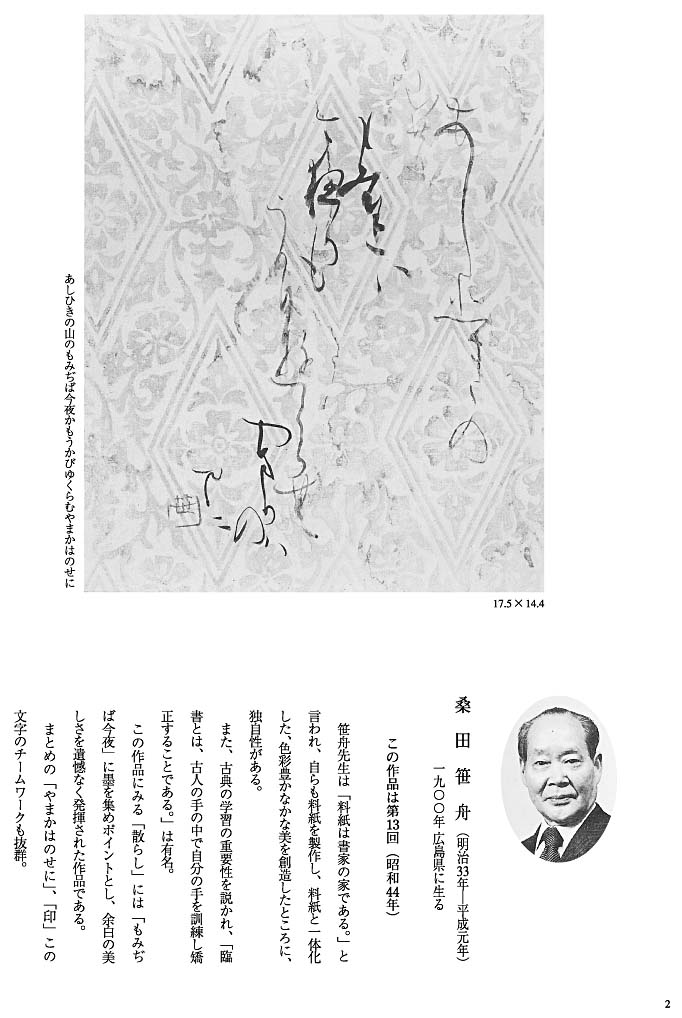 あしひきの山のもみぢば今夜かもうかびゆくらむやまかはのせに
17.5×14.4
桑田笹舟（明治33年―平成元年）
一九〇〇年 広島県に生る
この作品は第13回（昭和44年）
笹舟先生は「料紙は書家の家である。」と
言われ、自らも料紙を製作し、料紙と一体化
した、色彩豊かなかな美を創造したところに、
独自性がある。
また、古典の学習の重要性を説かれ、「臨
書とは、古人の手の中で自分の手を訓練し矯
正することである。」は有名。
この作品にみる「散らし」には「もみぢ
ば今夜」に墨を集めポイントとし、余白の美
しさを遺憾なく発揮された作品である。
まとめの「やまかはのせに」、「印」この
文字のチームワークも抜群。
2